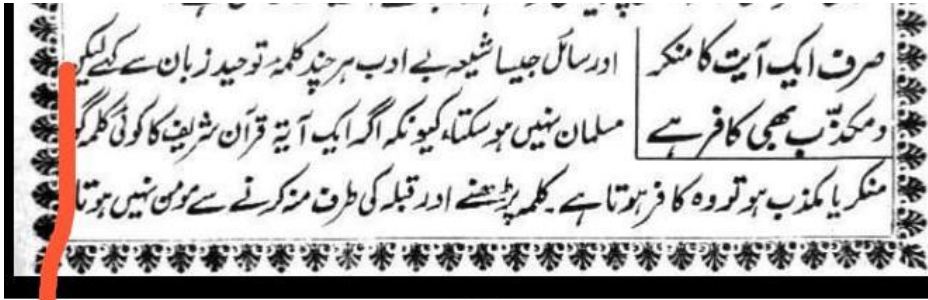 صرف ایک آیت کا منکر
و مکذّب بھی کافر ہے
اور سائل جیسا شیعہ بے ادب ہر چند کلمۂ توحید زبان سے کہے لیکن
مسلمان نہیں ہو سکتا، کیونکہ اگر ایک آیۃ قرآن شریف کا کوئی کلمہ گو
منکر یا مکذب ہو تو وہ کافر ہوتا ہے۔ کلمہ پڑھنے اور قبلہ کی طرف منہ کرنے سے مومن نہیں ہوتا